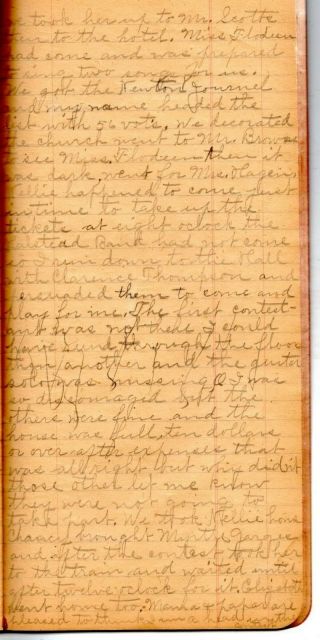 we took her up to Mr. Scotts
then to the hotel. Miss Flodeen
had come and was prepared
to sing two songs for us.
We got the Newton Journal
and my name headed the
list with 56 vots. We decorated
the church went to Mr. Browns
to see Miss. Flodeen then it
was dark, went for Mrs. Hagen,
Nellie happened to come just
in time to take up the
tickets at eight oclock the
Halstead Band had not come
so I run down to the Hall
with Clarence Thompson and
persuaded them to come and
play for me. The first contest-
ant was not there I could
have sunk through the floor
then another and the guitar
solo was missing O I was
so discouraged but the
others were fine and the
house was full, ten dollars
or over after expenses that
was allright but why did'nt
those other let me know
they were not going to
take part. We took Nellie home
brought Myrtle
and after the contest took her
to the train and waited until
after twelve oclock for it.
went home too. Mama & papa are
pleased to think